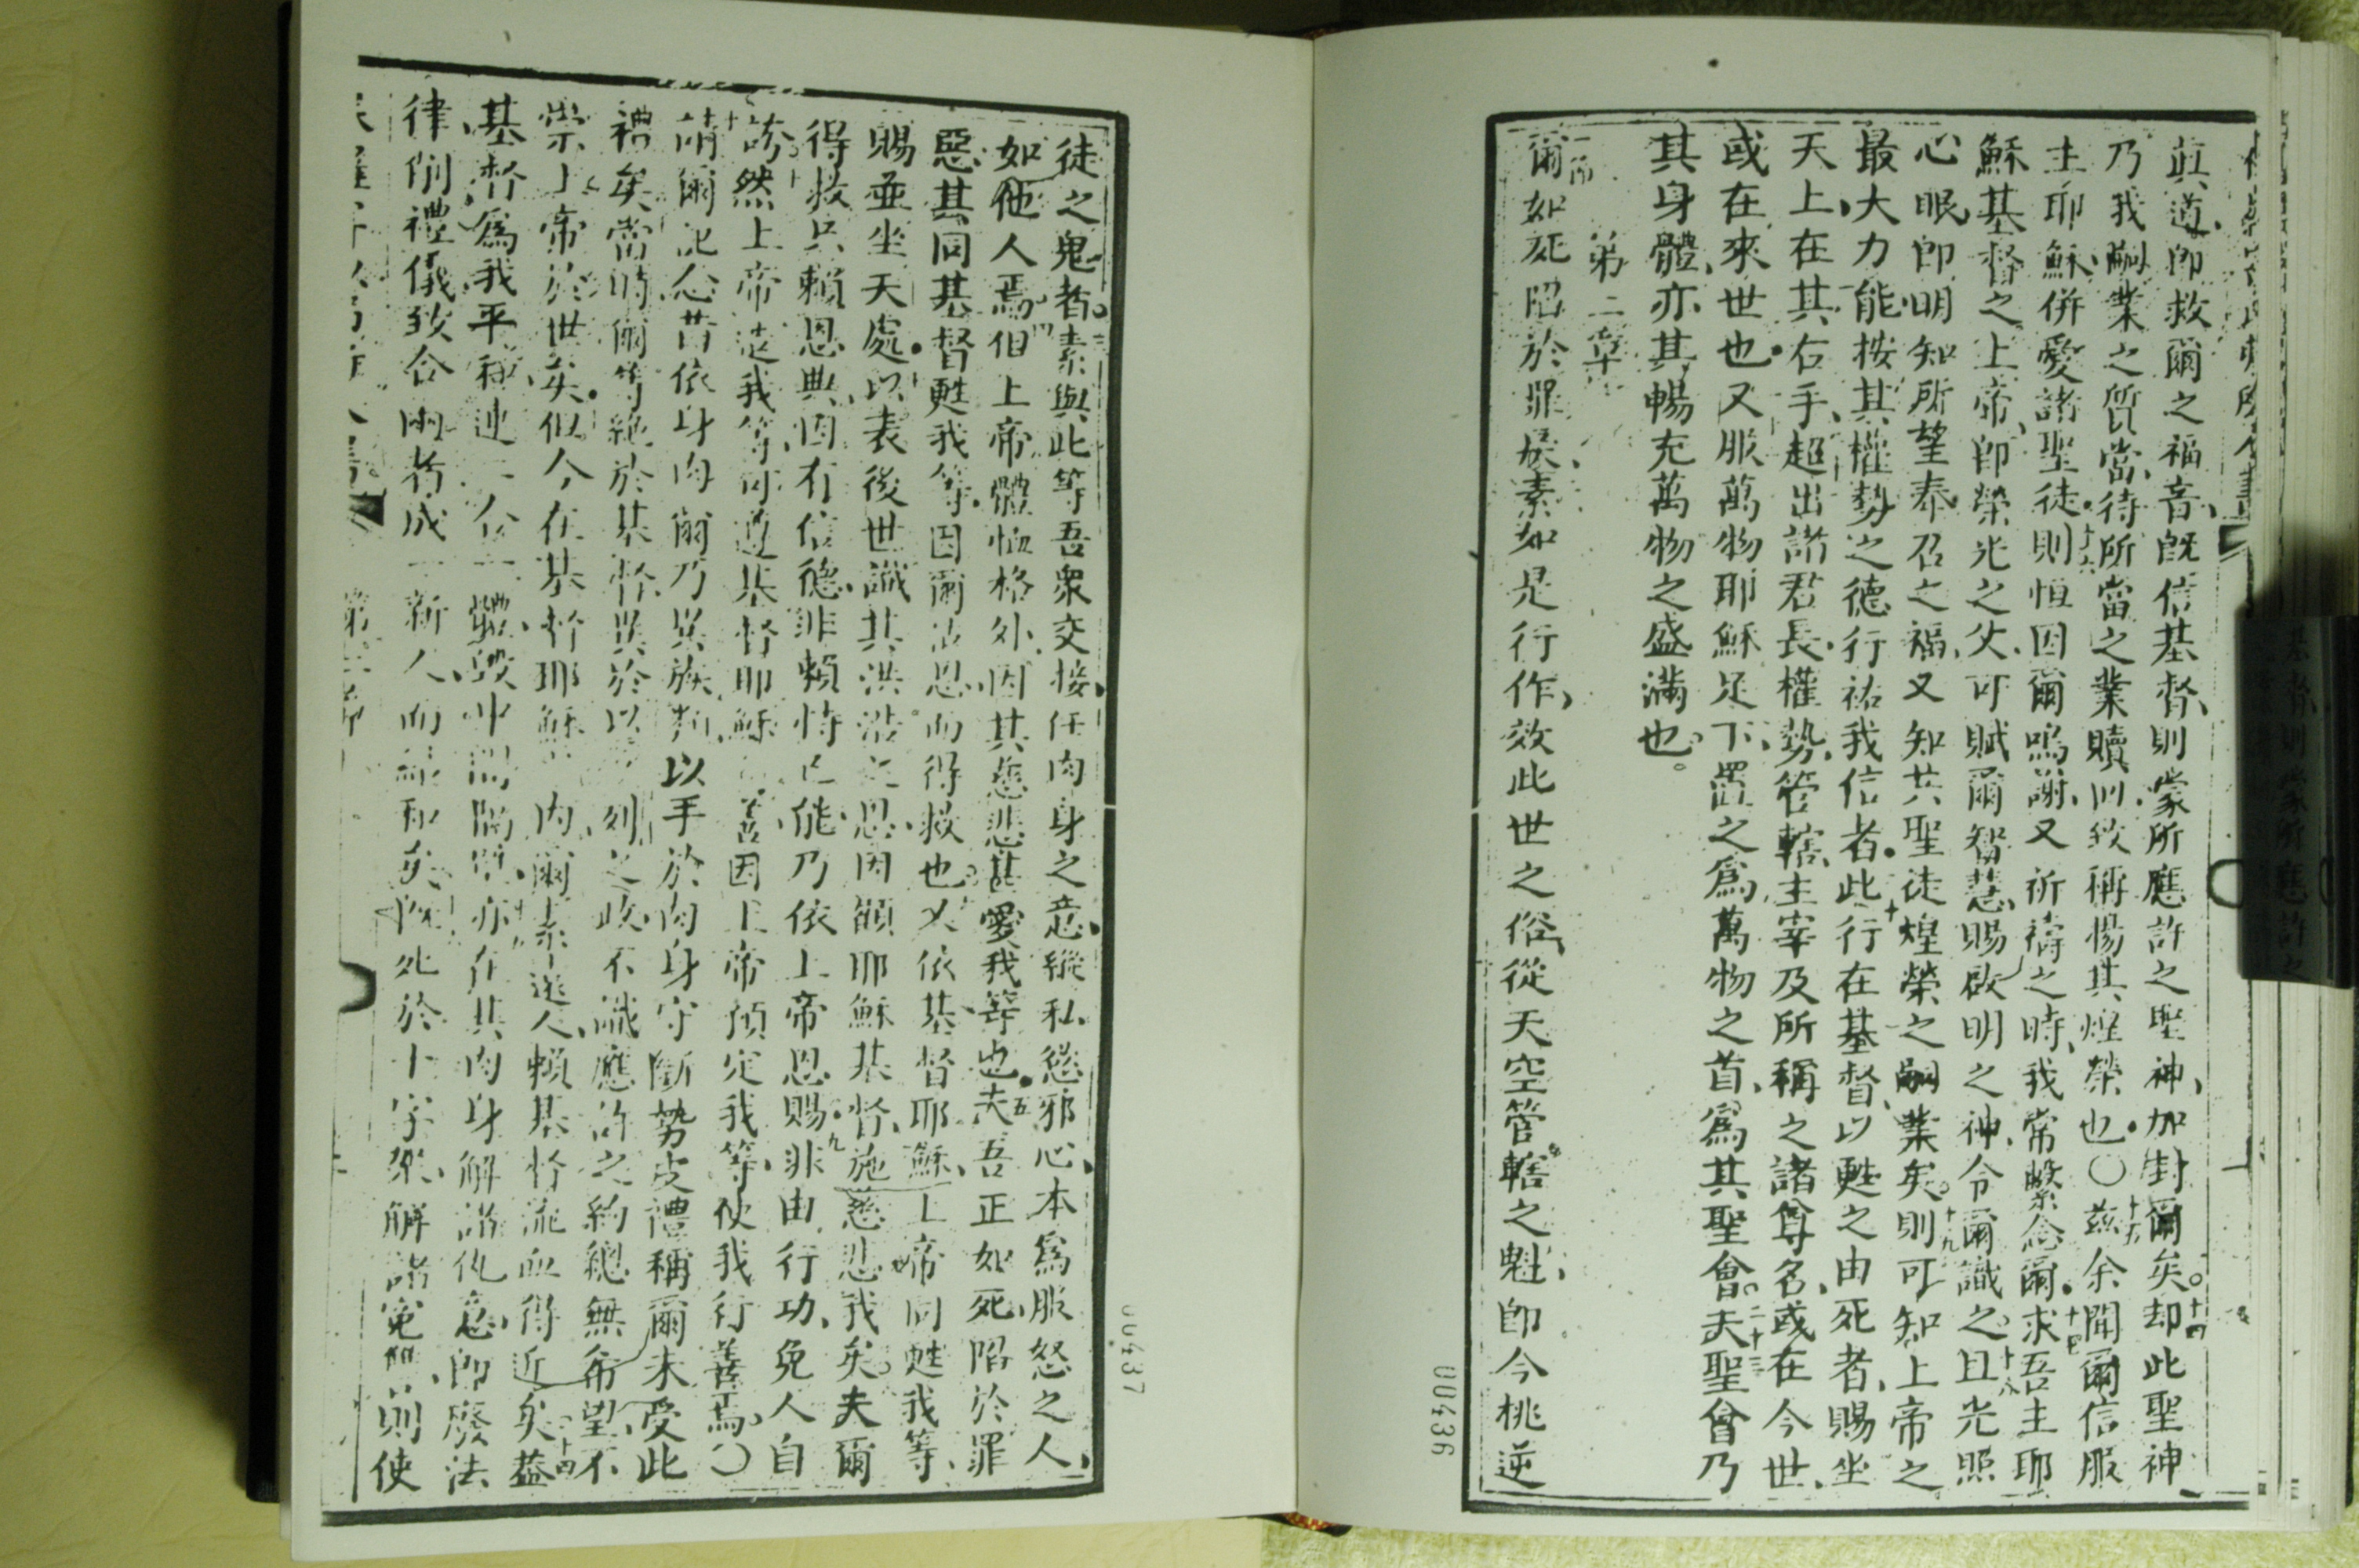 眞道、卽救爾之福音、旣信基督、則蒙所應許之聖神、加封爾矣。十四却此聖神、
乃我嗣業之質當、待所當之業贖囘、致稱揚其煌榮也。〇十五茲余聞爾信服
主耶穌、併愛諸聖徒。十六則恒因爾嗚謝、又祈禱之時、我常繫念爾。十七求吾主耶
穌基督之上帝、卽榮光之父、可賦爾智慧、賜啟明之神、令爾識之。十八且光照
心眼、卽明知所望奉召之福、又知其聖徒煌榮之嗣業矣。十九則可知上帝之
最大力能、按其權勢之德行祐我信者。此行在基督、以甦之由死者、賜坐
天上、在其右手、超出諸君長、權勢、管轄、主宰、及所稱之諸尊名、或在今世、
或在來世也。又服萬物耶穌足下、置之爲萬物之首、爲其聖會。二十三夫聖會乃
其身體、亦其暢充萬物之盛滿也。
第二章
一節爾如死陷於罪戾、素如是行作、效此世之俗、從天空管轄之魁、卽今桃逆
00436
徒之鬼者。三素與此等吾衆交接、任肉身之意、縱私慾邪心、本爲服怒之人、
如他人焉。四但上帝體恤格外、因其慈悲甚愛我等也。五夫吾正如死、陷於罪
惡、其同基督甦我等。因爾沾恩、而得救也。又依基督耶穌、上帝同甦我等、
賜並坐天處。以表後世識其洪浩之恩、因顧耶穌基督、施慈悲我矣。夫爾
得救、只賴恩典、因有信德、非賴恃己能、乃依上帝恩賜。九非由行功、免人自
誇。十然上帝造我等、可遵基督耶穌 善、因上帝預定我等、使我行善焉。〇
請爾記念昔依身肉、爾乃異族類、以手於肉身守斷勢皮禮、稱爾未受此
禮矣。當時爾等絕於基督、異於以 列之政、不識應許之約、總無希望、不
崇上帝於世矣。但今在基督耶穌 內、爾素遠人、賴基督流血得近矣。十四蓋
基督爲我平和、連二合一體、毀中間隔 、亦在其肉身解諸仇怠、卽廢法
律例禮儀、致合兩者成一新人、而 和矣。 死於十字架、解諸冤仇、則使
00437